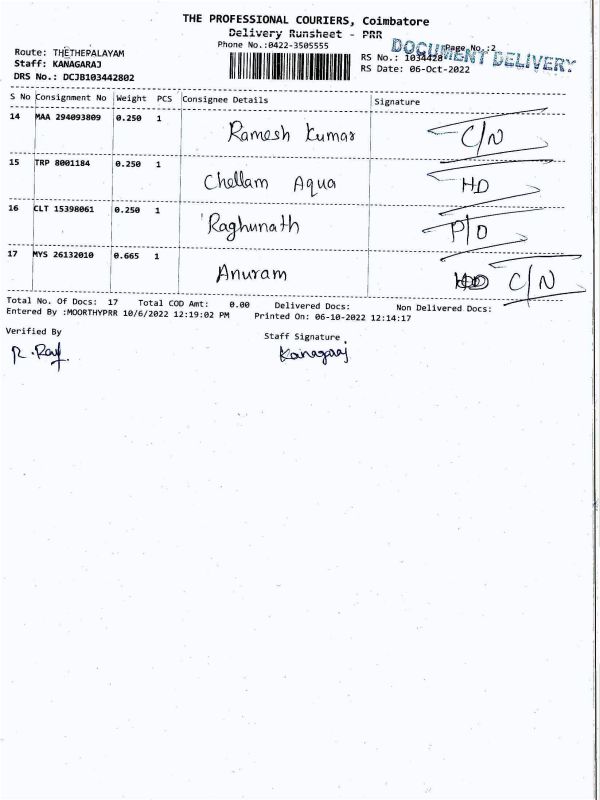 THE PROFESSIONAL COURIERS, Coimbatore
Delivery Runsheet - PRR
Phone No.:0422-3505555
Page No.:2
DOCUMENT DELIVERY
Route: THETHEPALAYAM
RS No.: 1034428
Staff: KANAGARAJ
RS Date: 06-Oct-2022
DRS No.: DCJB103442802
S No Consignment No Weight PCS Consignee Details Signature
14 MAA 294093809 0.250 1 Ramesh Kumar C/N
15 TRP 8001184 0.250 1 Chellam Aqua HD
16 CLT 15398061 0.250 1 Raghunath P/O
17 MYS 26132010 0.665 1 Anuram C/N
Total No. Of Docs: 17 Total COD Amt: 0.00 Delivered Docs: Non Delivered Docs:
Entered By :MOORTHYPRR 10/6/2022 12:19:02 PM Printed On: 06-10-2022 12:14:17
Verified By Staff Signature
Kanagaraj